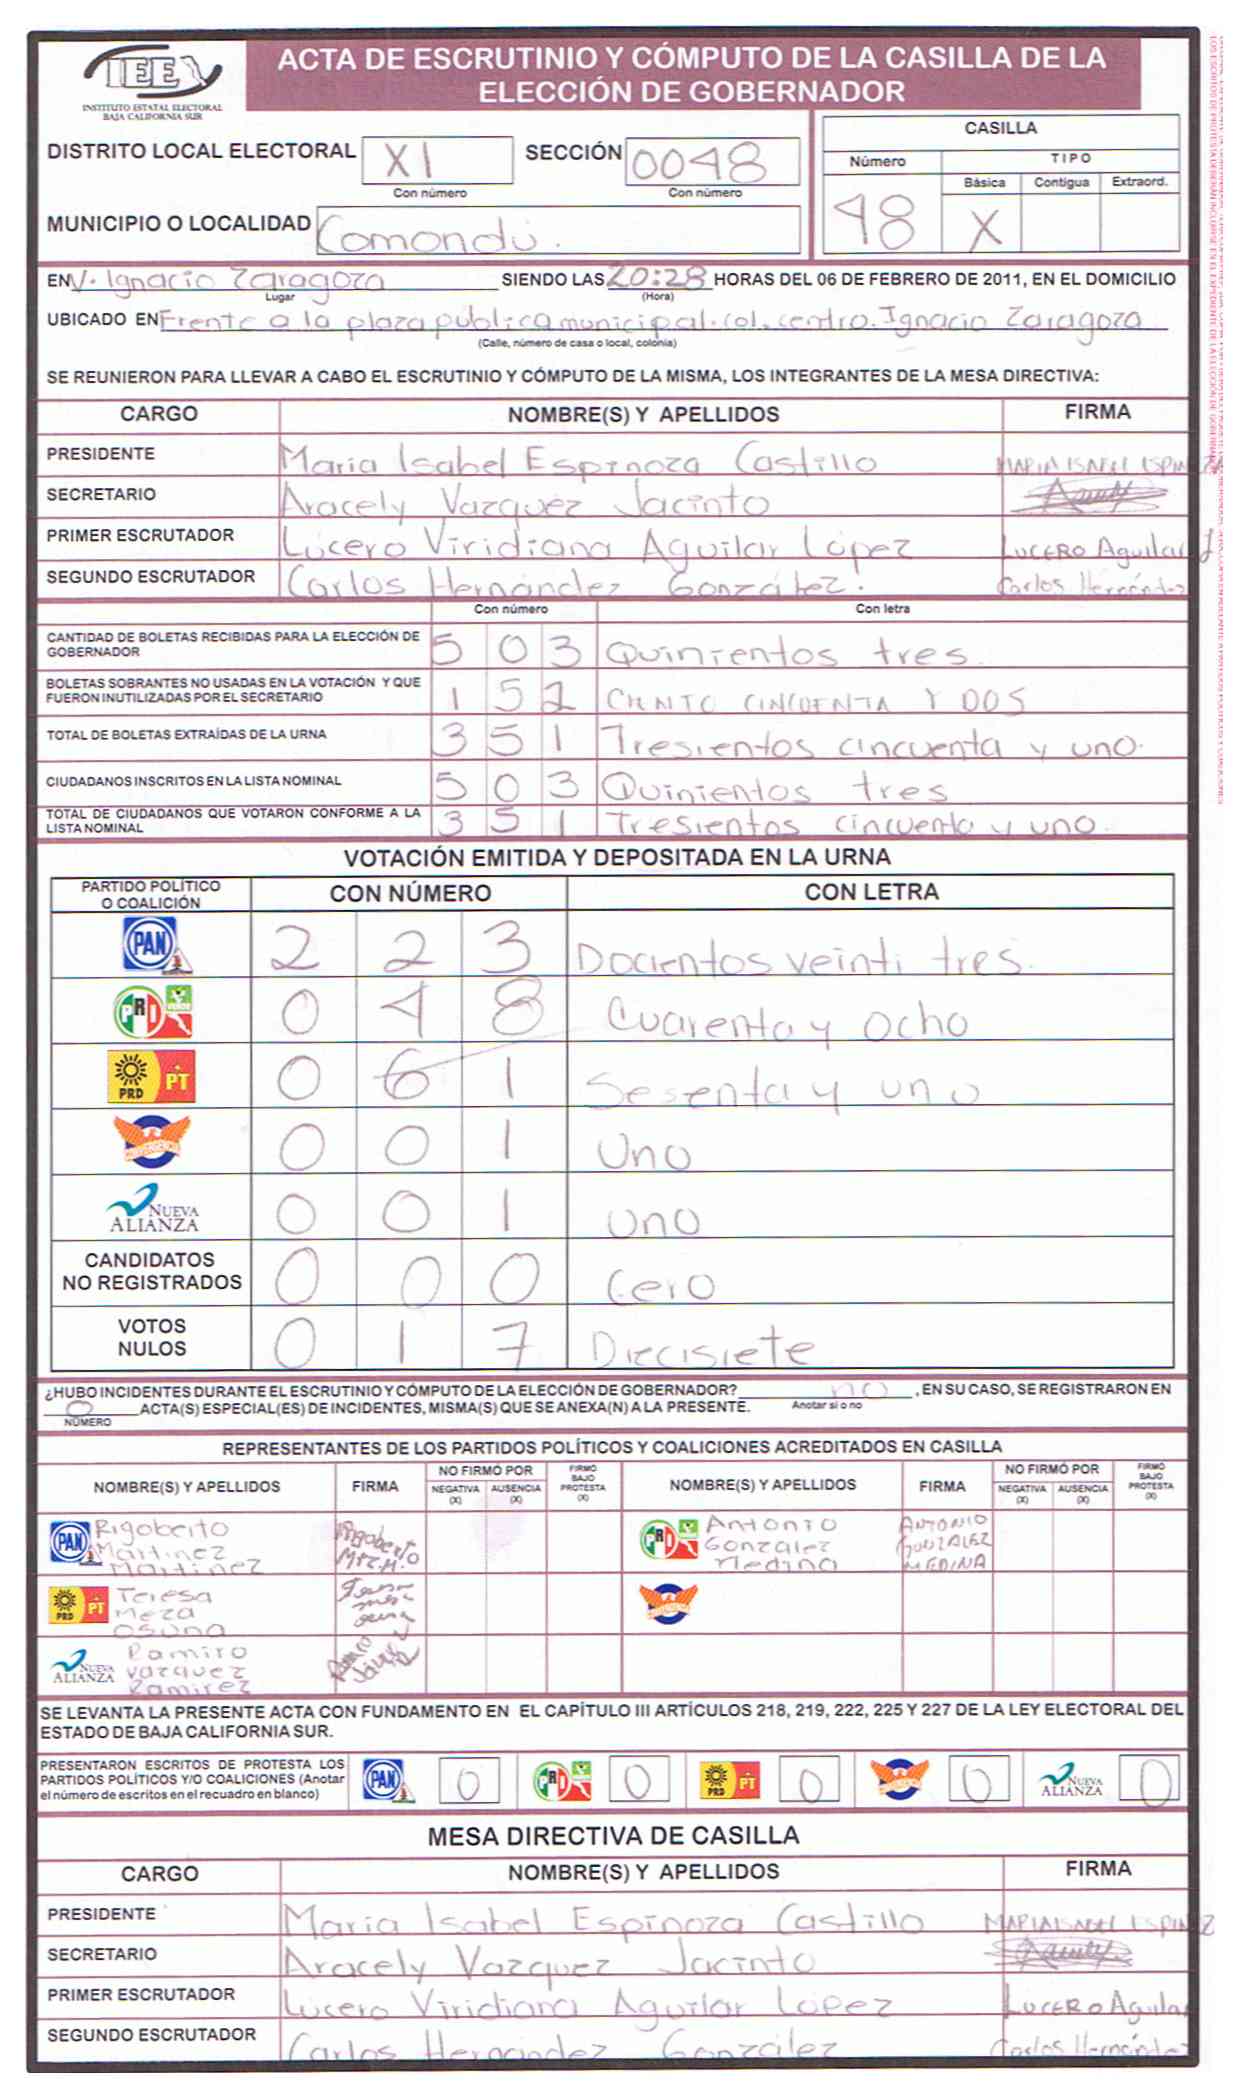 IEE
INSTITUTO ESTATAL ELECTORAL
BAJA CALIFORNIA SUR
ACTA DE ESCRUTINIO Y CÓMPUTO DE LA CASILLA DE LA
ELECCIÓN DE GOBERNADOR
DISTRITO LOCAL ELECTORAL XI SECCIÓN 0048
Con número Con número
MUNICIPIO O LOCALIDAD Comondú.
CASILLA
Número TIPO
Básica Contigua Extraord.
48 X
EN V. Ignacio Zaragoza SIENDO LAS 20:28 HORAS DEL 06 DE FEBRERO DE 2011, EN EL DOMICILIO
Lugar (Hora)
UBICADO EN Frente a la plaza publica municipal. col. centro. Ignacio Zaragoza
(Calle, número de casa o local, colonia)
SE REUNIERON PARA LLEVAR A CABO EL ESCRUTINIO Y CÓMPUTO DE LA MISMA, LOS INTEGRANTES DE LA MESA DIRECTIVA:
CARGO NOMBRE(S) Y APELLIDOS FIRMA
PRESIDENTE Maria Isabel Espinoza Castillo MARIA ISABEL ESPINOZ
SECRETARIO Aracely Vazquez Jacinto
PRIMER ESCRUTADOR Lucero Viridiana Aguilar López LUCERO Aguilar L
SEGUNDO ESCRUTADOR Carlos Hernández González. Carlos Hernández
Con número Con letra
CANTIDAD DE BOLETAS RECIBIDAS PARA LA ELECCIÓN DE
GOBERNADOR 5 0 3 Quinientos tres.
BOLETAS SOBRANTES NO USADAS EN LA VOTACIÓN Y QUE
FUERON INUTILIZADAS POR EL SECRETARIO 1 5 2 CIENTO CINCUENTA Y DOS
TOTAL DE BOLETAS EXTRAÍDAS DE LA URNA 3 5 1 Tresientos cincuenta y uno.
CIUDADANOS INSCRITOS EN LA LISTA NOMINAL 5 0 3 Quinientos tres
TOTAL DE CIUDADANOS QUE VOTARON CONFORME A LA
LISTA NOMINAL 3 5 1 Tresientos cincuenta y uno.
VOTACIÓN EMITIDA Y DEPOSITADA EN LA URNA
PARTIDO POLÍTICO
O COALICIÓN CON NÚMERO CON LETRA
PAN 2 2 3 Docientos veinti tres.
PRI VERDE 0 4 8 Cuarenta y ocho
PRD PT 0 6 1 Sesenta y uno
CONVERGENCIA 0 0 1 Uno
NUEVA ALIANZA 0 0 1 Uno
CANDIDATOS
NO REGISTRADOS 0 0 0 Cero
VOTOS
NULOS 0 1 7 Diecisiete
¿HUBO INCIDENTES DURANTE EL ESCRUTINIO Y CÓMPUTO DE LA ELECCIÓN DE GOBERNADOR? no , EN SU CASO, SE REGISTRARON EN
0 ACTA(S) ESPECIAL(ES) DE INCIDENTES, MISMA(S) QUE SE ANEXA(N) A LA PRESENTE. Anotar si o no
NÚMERO
REPRESENTANTES DE LOS PARTIDOS POLÍTICOS Y COALICIONES ACREDITADOS EN CASILLA
NOMBRE(S) Y APELLIDOS FIRMA NO FIRMÓ POR NEGATIVA (X) AUSENCIA (X) FIRMÓ BAJO PROTESTA (X) NOMBRE(S) Y APELLIDOS FIRMA NO FIRMÓ POR NEGATIVA (X) AUSENCIA (X) FIRMÓ BAJO PROTESTA (X)
PAN Rigoberto Martinez Martinez Rigoberto Mtz.M. PRI Antonio Gonzalez Medina ANTONIO GONZALEZ MEDINA
PRD PT Teresa Meza Osuna Teresa meza osuna
NUEVA ALIANZA Ramiro Vazquez Ramirez
SE LEVANTA LA PRESENTE ACTA CON FUNDAMENTO EN EL CAPÍTULO III ARTÍCULOS 218, 219, 222, 225 Y 227 DE LA LEY ELECTORAL DEL
ESTADO DE BAJA CALIFORNIA SUR.
PRESENTARON ESCRITOS DE PROTESTA LOS
PARTIDOS POLÍTICOS Y/O COALICIONES (Anotar
el número de escritos en el recuadro en blanco)
PAN 0 PRI 0 PRD PT 0 CONVERGENCIA 0 NUEVA ALIANZA 0
MESA DIRECTIVA DE CASILLA
CARGO NOMBRE(S) Y APELLIDOS FIRMA
PRESIDENTE Maria Isabel Espinoza Castillo MARIA ISABEL ESPINOZ
SECRETARIO Aracely Vazquez Jacinto
PRIMER ESCRUTADOR Lucero Viridiana Aguilar López LUCERO Aguilar
SEGUNDO ESCRUTADOR Carlos Hernández González Carlos Hernández